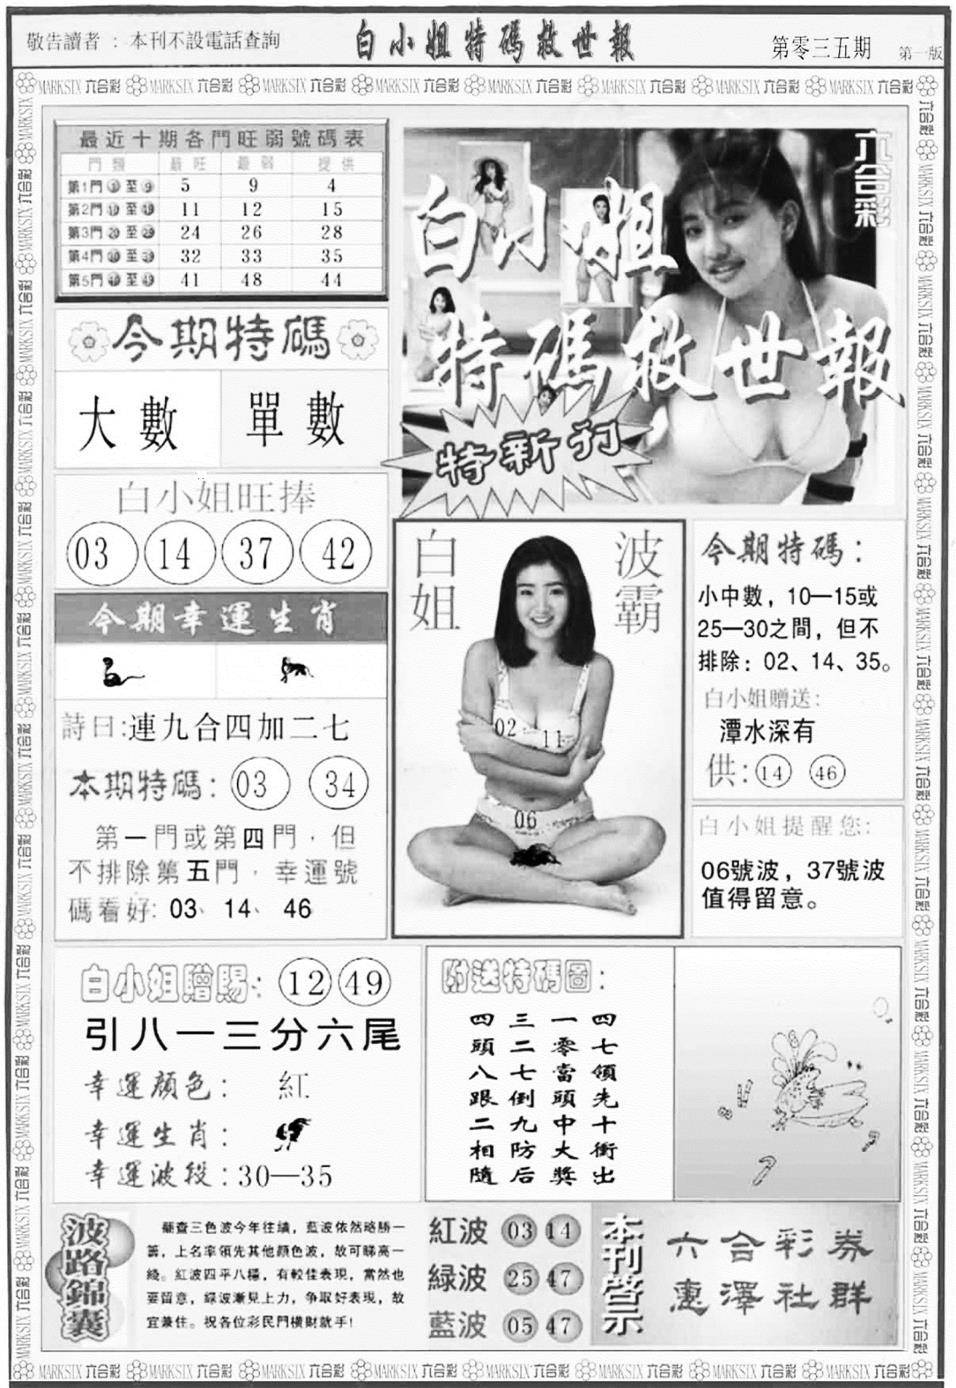 敬告讀者：本刊不設電話查詢
白小姐特碼救世報
第零三五期 第一版
MARKSIX 六合彩
最近十期各門旺弱號碼表
門類 最旺 最弱 提供
第1門 至 9 5 9 4
第2門 至 11 12 15
第3門 20 至 29 24 26 28
第4門 至 32 33 35
第5門 至 41 48 44
今期特碼
大數 單數
白小姐旺捧
03 14 37 42
今期幸運生肖
詩曰:連九合四加二七
本期特碼: 03 34
第一門或第四門，但
不排除第五門，幸運號
碼看好: 03、14、46
六合彩
白小姐
特碼救世報
特新刊
白姐
波霸
02 11
06
今期特碼：
小中數，10—15或
25—30之間，但不
排除：02、14、35。
白小姐贈送:
潭水深有
供: 14 46
白小姐提醒您:
06號波，37號波
值得留意。
白小姐贈賜: 12 49
引八一三分六尾
幸運顏色： 紅
幸運生肖：
幸運波段:30—35
附送特碼圖：
四七領先十衝出
一零當頭中大獎
三二七倒九防后
四頭八跟二相隨
波路錦囊
查三色波今年往績，藍波依然略勝一
籌，上名率領先其他顏色波，故可睇高一
綫。紅波四平八穩，有較佳表現，當然也
要留意，綠波漸見上力，爭取好表現，故
宜兼住。祝各位彩民門橫財就手!
紅波 03 14
緑波 25 47
藍波 05 47
本刊啓示
六合彩券
惠澤社群